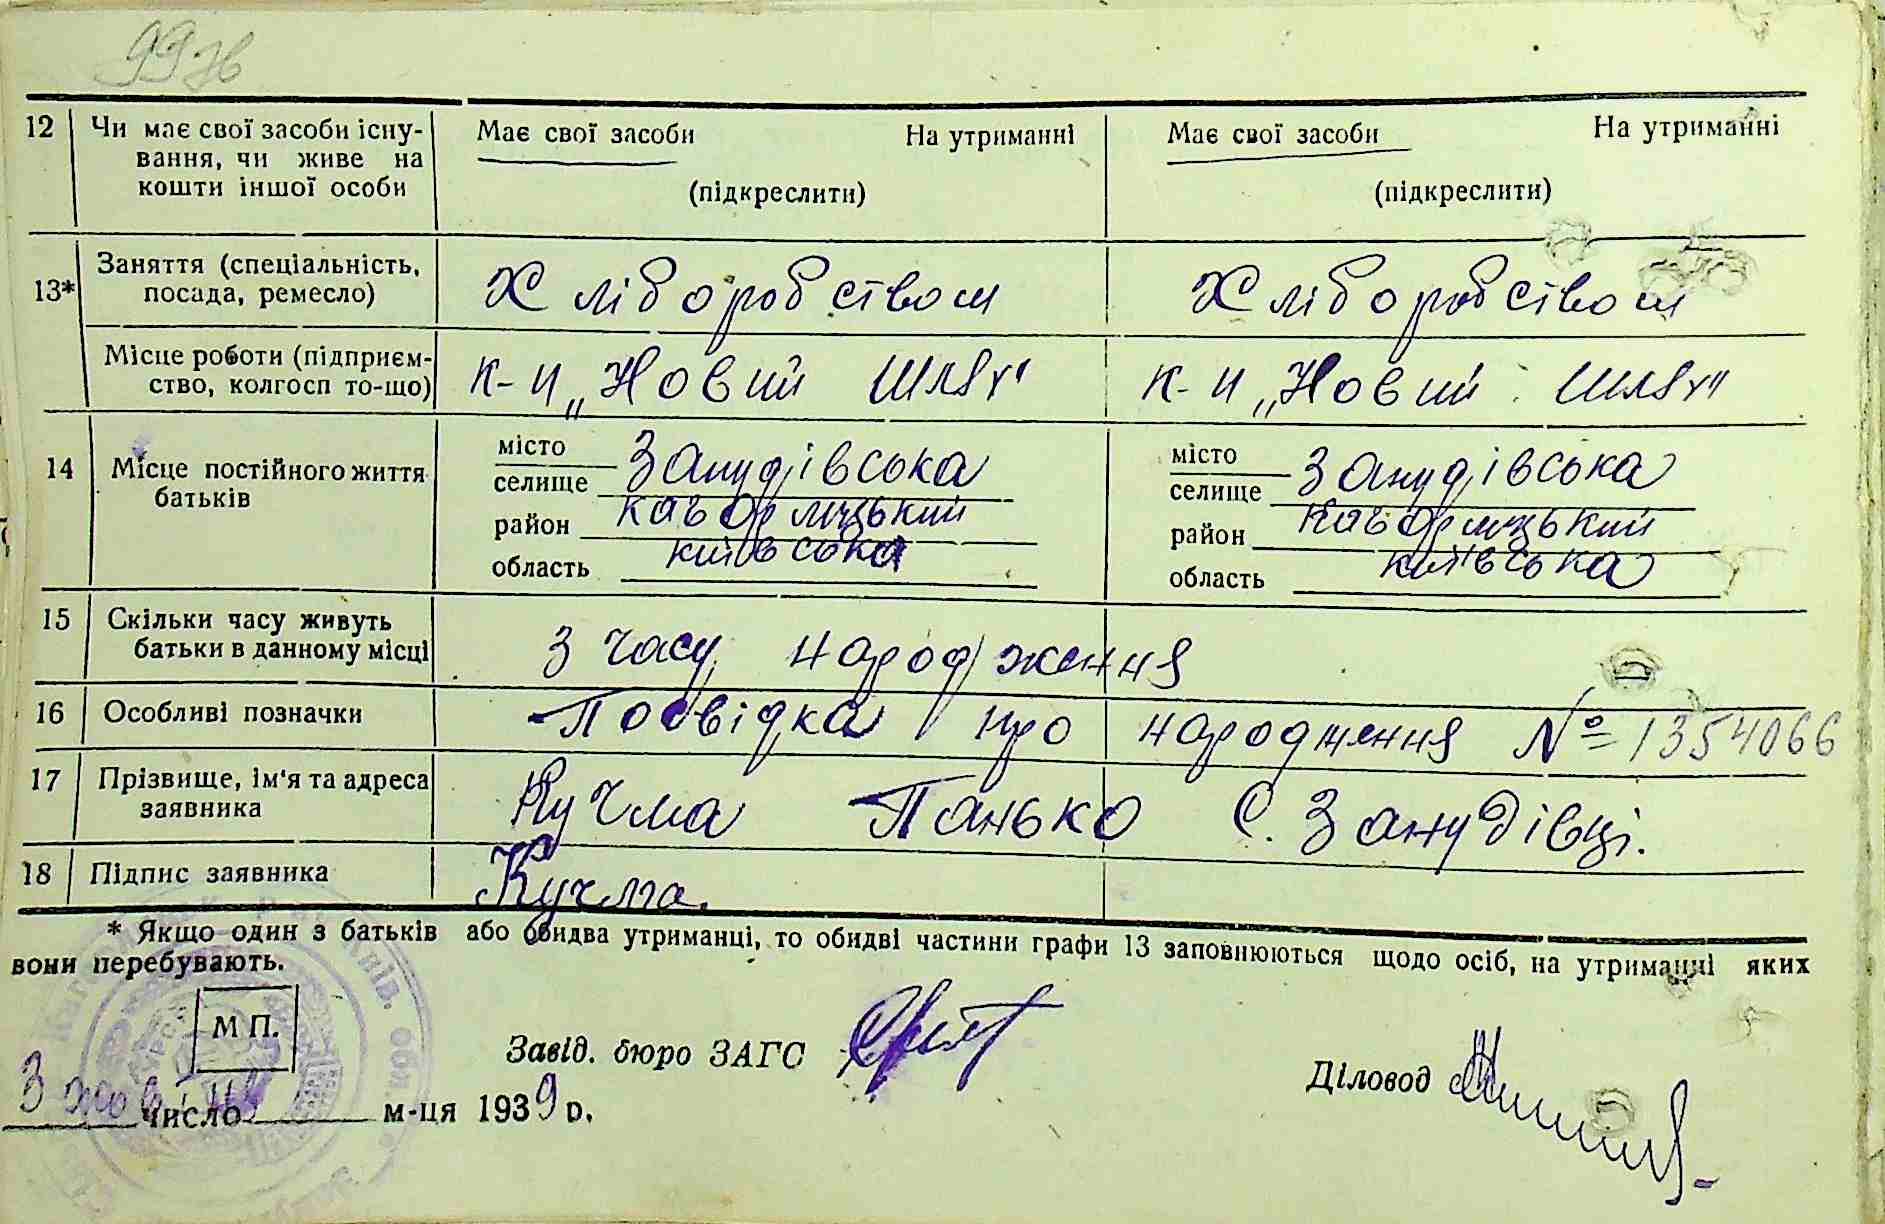 99 зв
12 Чи має свої засоби існу- Має свої засоби На утриманні Має свої засоби На утриманні
вання, чи живе на
кошти іншої особи (підкреслити) (підкреслити)
13* Заняття (спеціальність, Хліборобством Хліборобством
посада, ремесло)
Місце роботи (підприєм- К-п „Новий Шлях" К-п „Новий Шлях"
ство, колгосп то-що)
14 Місце постійного життя місто місто
батьків селище Занудівська селище Занудівська
район Кагорлицький район Кагорлицький
область київська область київська
15 Скільки часу живуть З часу народження
батьки в данному місці
16 Особливі позначки Посвідка про народження № 1354066
17 Прізвище, ім'я та адреса Кучма Панько С. Занудівці.
заявника
18 Підпис заявника Кучма.
* Якщо один з батьків або обидва утриманці, то обидві частини графи 13 заповнюються щодо осіб, на утриманні яких
вони перебувають.
М П.
Завід. бюро ЗАГС
Діловод
3 число м-ця 1939 р.